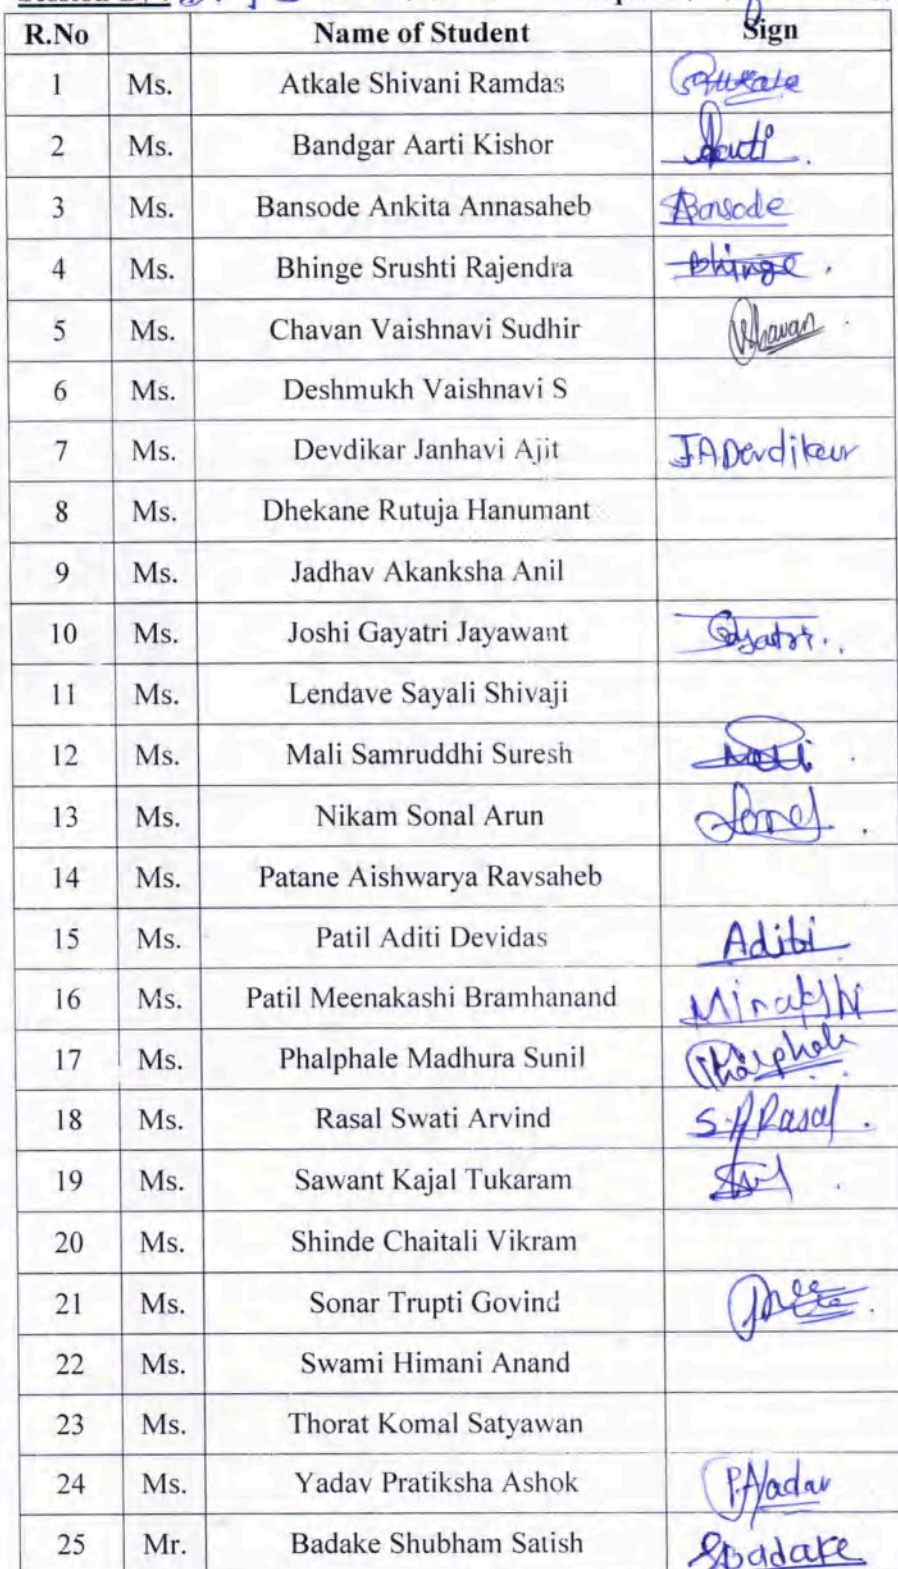 R.No Name of Student Sign
1 Ms. Atkale Shivani Ramdas
2 Ms. Bandgar Aarti Kishor Aarti
3 Ms. Bansode Ankita Annasaheb ABansode
4 Ms. Bhinge Srushti Rajendra Bhinge
5 Ms. Chavan Vaishnavi Sudhir
6 Ms. Deshmukh Vaishnavi S
7 Ms. Devdikar Janhavi Ajit J.A.Devdikar
8 Ms. Dhekane Rutuja Hanumant
9 Ms. Jadhav Akanksha Anil
10 Ms. Joshi Gayatri Jayawant Gayatri
11 Ms. Lendave Sayali Shivaji
12 Ms. Mali Samruddhi Suresh Mali
13 Ms. Nikam Sonal Arun Sonal
14 Ms. Patane Aishwarya Ravsaheb
15 Ms. Patil Aditi Devidas Aditi
16 Ms. Patil Meenakashi Bramhanand Minakshi
17 Ms. Phalphale Madhura Sunil Phalphale
18 Ms. Rasal Swati Arvind S.A.Rasal
19 Ms. Sawant Kajal Tukaram
20 Ms. Shinde Chaitali Vikram
21 Ms. Sonar Trupti Govind
22 Ms. Swami Himani Anand
23 Ms. Thorat Komal Satyawan
24 Ms. Yadav Pratiksha Ashok P.A.Yadav
25 Mr. Badake Shubham Satish SBadake